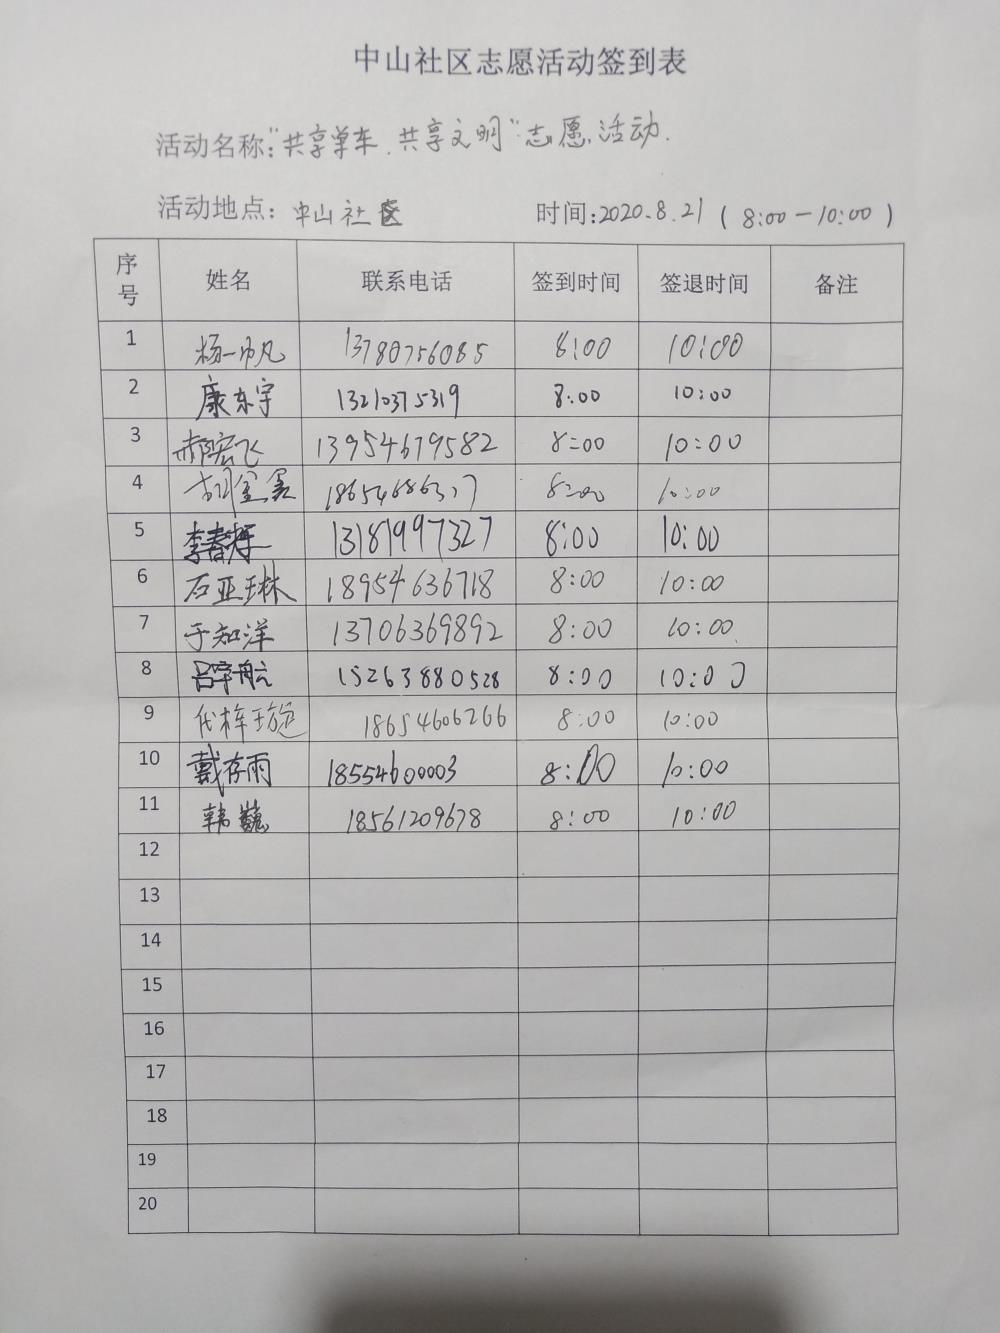 中山社区志愿活动签到表
活动名称:"共享单车、共享文明"志愿活动.
活动地点: 中山社区 时间:2020.8.21 (8:00-10:00)
序号 姓名 联系电话 签到时间 签退时间 备注
1 杨一帆 13780756085 8:00 10:00
2 康东宇 13210375319 8:00 10:00
3 郝宏飞 13954679582 8:00 10:00
4 8:00 10:00
5 李春辉 13181997327 8:00 10:00
6 石亚琳 18954636718 8:00 10:00
7 于知洋 13706369892 8:00 10:00
8 吕宇航 15263880528 8:00 10:00
9 代梓璇 18654606266 8:00 10:00
10 戴存雨 18554600003 8:00 10:00
11 韩巍 18561209678 8:00 10:00
12
13
14
15
16
17
18
19
20